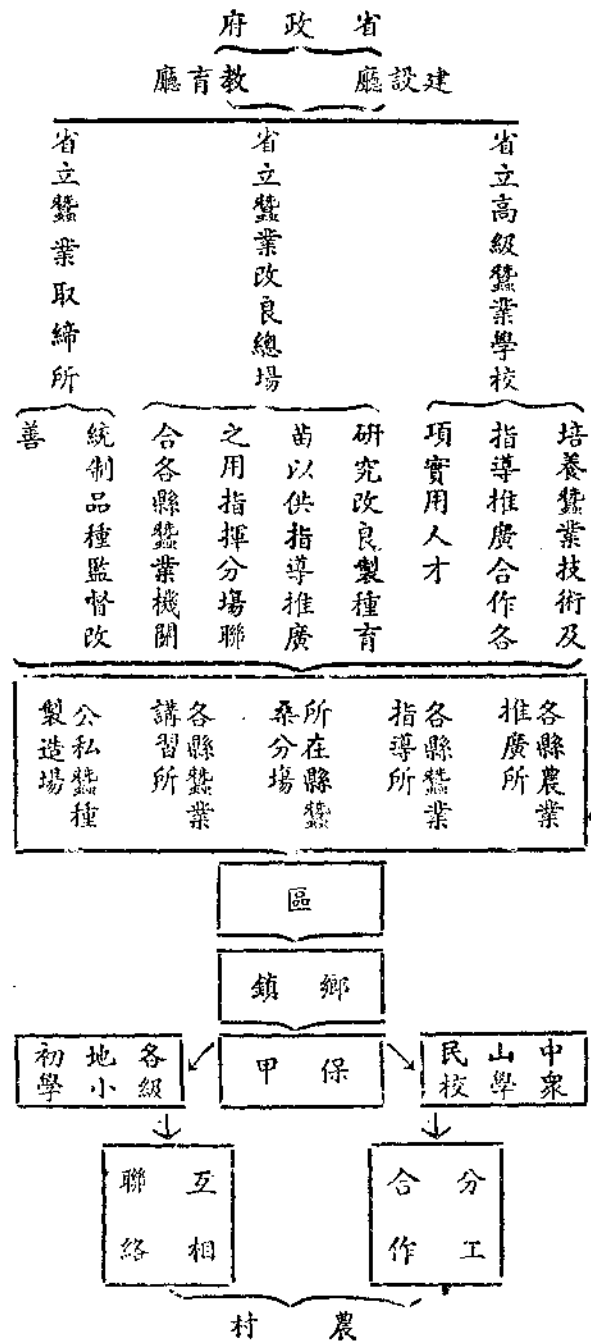 省政府
建設廳
教育廳
省立高級蠶業學校
省立蠶業改良總場
省立蠶業取締所
培養蠶業技術及
指導推廣合作各
項實用人才
研究改良製種育
苗以供指導推廣
之用指揮分場聯
合各縣蠶業機關
統制品種監督改
善
各縣農業
推廣所
各縣蠶業
指導所
所在縣蠶
桑分場
各縣蠶業
講習所
公私蠶種
製造場
區
鄉鎮
保甲
中山民
衆學校
各地初
級小學
分工
合作
互相
聯絡
農村